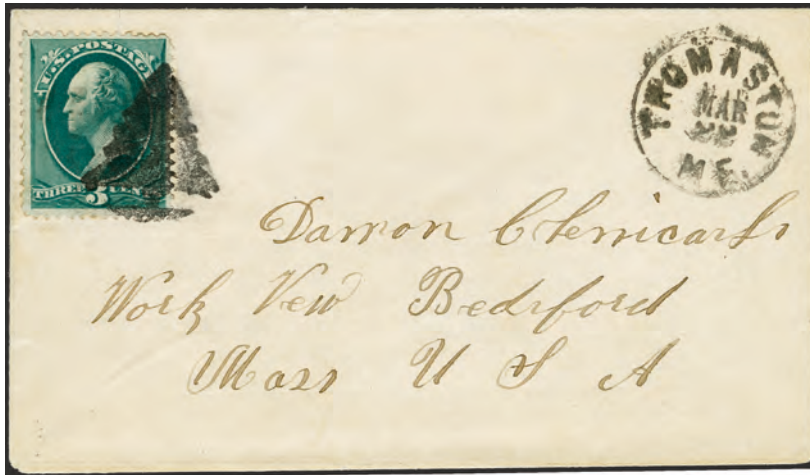 U.S. POSTAGE
THREE 3 CENTS
THOMASTON
MAR
22
ME.
Damon Chemicarls
Work New Bedsford
Mass U S A